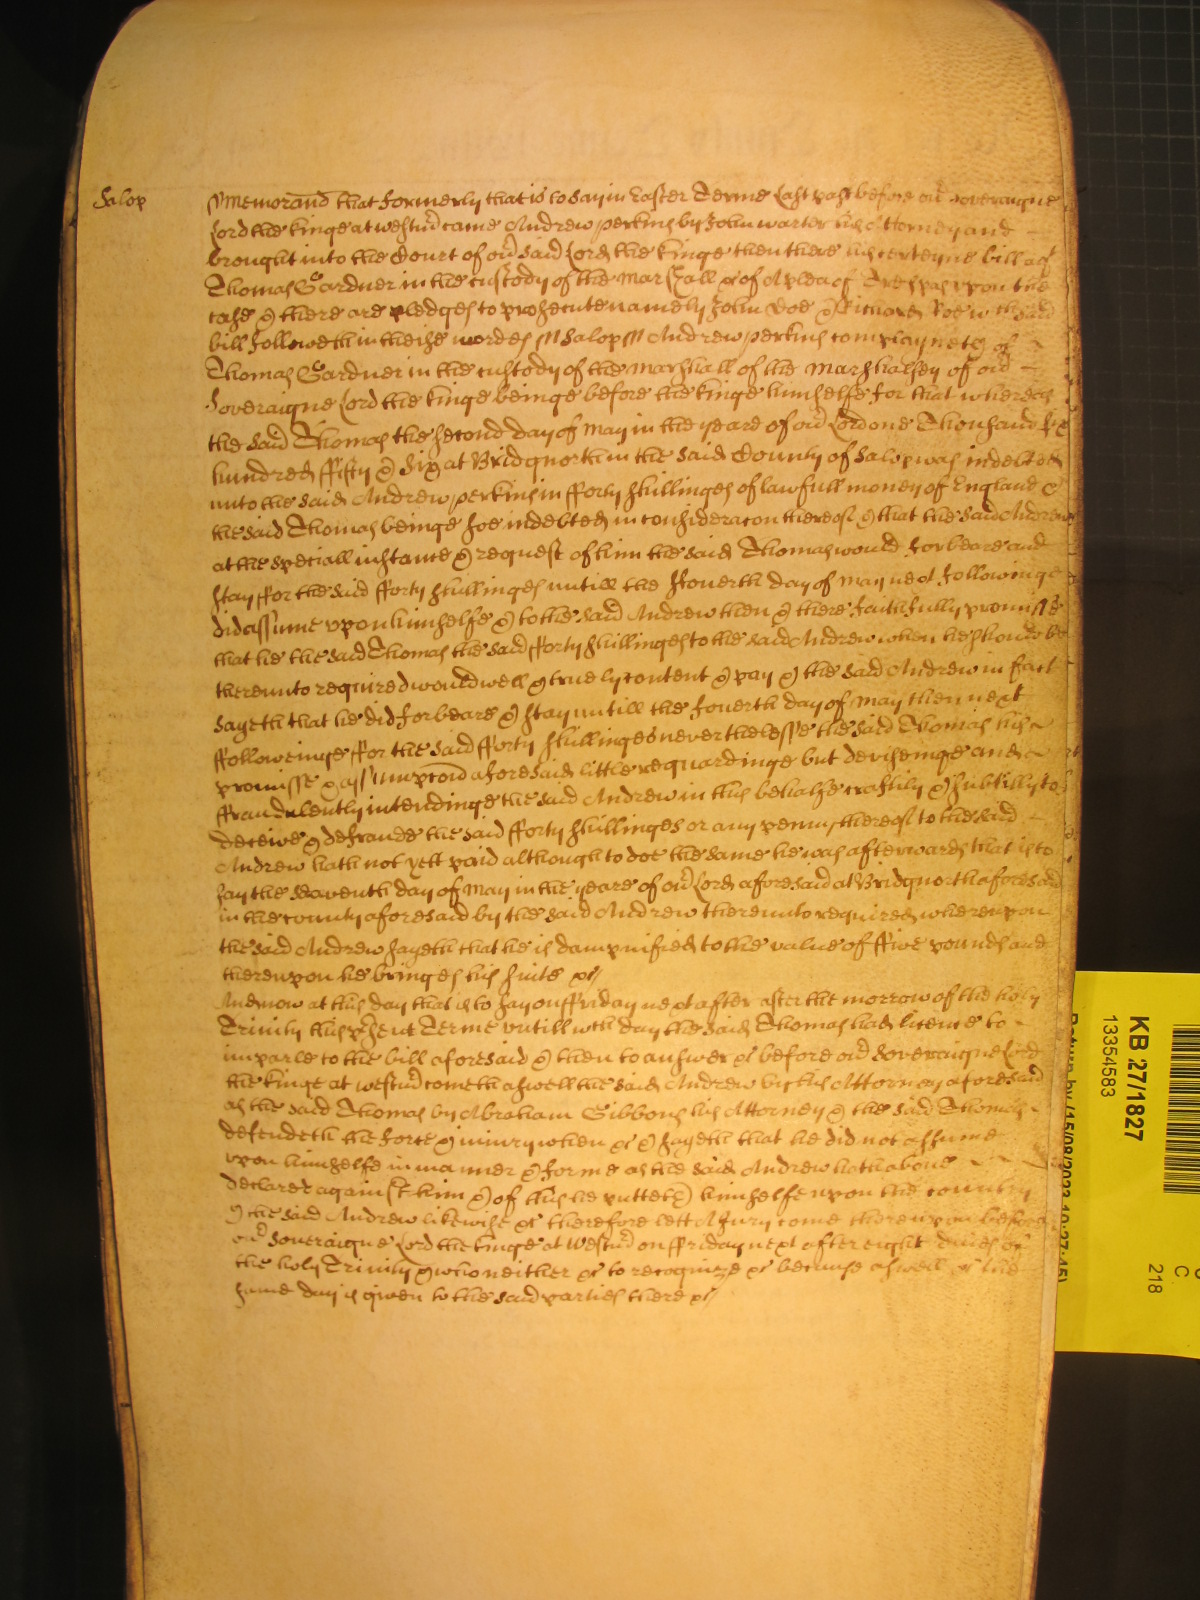 Salop
Memorand that Formerly that is to say in Easter Terme Last past before our Soveraigne
Lord the kinge at westmr came Andrew perkins by John warter his Attorney and
brought into the Court of our said Lord the kinge then there his certeyne bill agt
Thomas Gardner in the custody of the marshall &c of A plea of Trespas upon the
case & there are pledges to prosecute namely John Doe & Richard Roe wch said
bill followeth in theise wordes Salop Andrew perkins complayneth of
Thomas Gardner in the custody of the marshall of the marshalsey of our
Soveraigne Lord the kinge beinge before the kinge himselfe for that whereas
the said Thomas the second day of May in the yeare of our Lord one Thousand six
hundred ffifty & Six at Bridgnorth in the said County of Salop was indebted
unto the said Andrew perkins in fforty shillinges of lawfull money of England &
the said Thomas beinge soe indebted in consideracon thereof & that the said Andrew
at the speciall instance & request of him the said Thomas would forbeare and
stay ffor the said fforty shillinges untill the ffouerth day of may next followinge
did assume upon himselfe & to the said Andrew then & there faithfully promisse
that he the said Thomas the said fforty shillinges to the said Andrew when he should be
thereunto required would well & truely content & pay & the said Andrew in fact
sayeth that he did forbeare & stay untill the fouerth day of may then next
ffolloweinge ffor the said fforty shillinges neverthelesse the said Thomas his
promisse & assumpcon aforesaid little reguardinge but deviseinge and
ffraudulently intendinge the said Andrew in this behalfe craftily & subtilly to
deceive & defraude the said fforty shillinges or any penny thereof to the said
Andrew hath not yett paid although to doe the same he was afterwards that is to
say the Seaventh day of May in the yeare of our Lord aforesaid at Bridgnorth aforesaid
in the county aforesaid by the said Andrew thereunto required whereupon
the said Andrew sayeth that he is dampnified to the value of ffive pounds and
thereupon he bringes his suite &c
And now at this day that is to say on ffriday next after after the morrow of the holy
Trinity this present Terme untill wch day the said Thomas had licence to
imparle to the bill aforesaid & then to answer &c before our Soveraigne Lord
the kinge at westmr cometh aswell the said Andrew by his Attorney aforesaid
as the said Thomas by Abraham Gibbons his Attorney & the said Thomas
defendeth the force & iniury when &c & sayeth that he did not assume
upon himselfe in manner & forme as the said Andrew hath above
declared against him & of this he putteth himselfe upon the country
& the said Andrew likewise &c therefore lett A Jury come thereupon before
our Soveraigne Lord the kinge at Westmr on ffriday next after eight dayes of
the holy Trinity & who neither &c to recognize &c because aswell &c the
same day is given to the said parties there &c
KB 27/1827
13354583
Return by (15/08/2023 10:27:15)
C
218